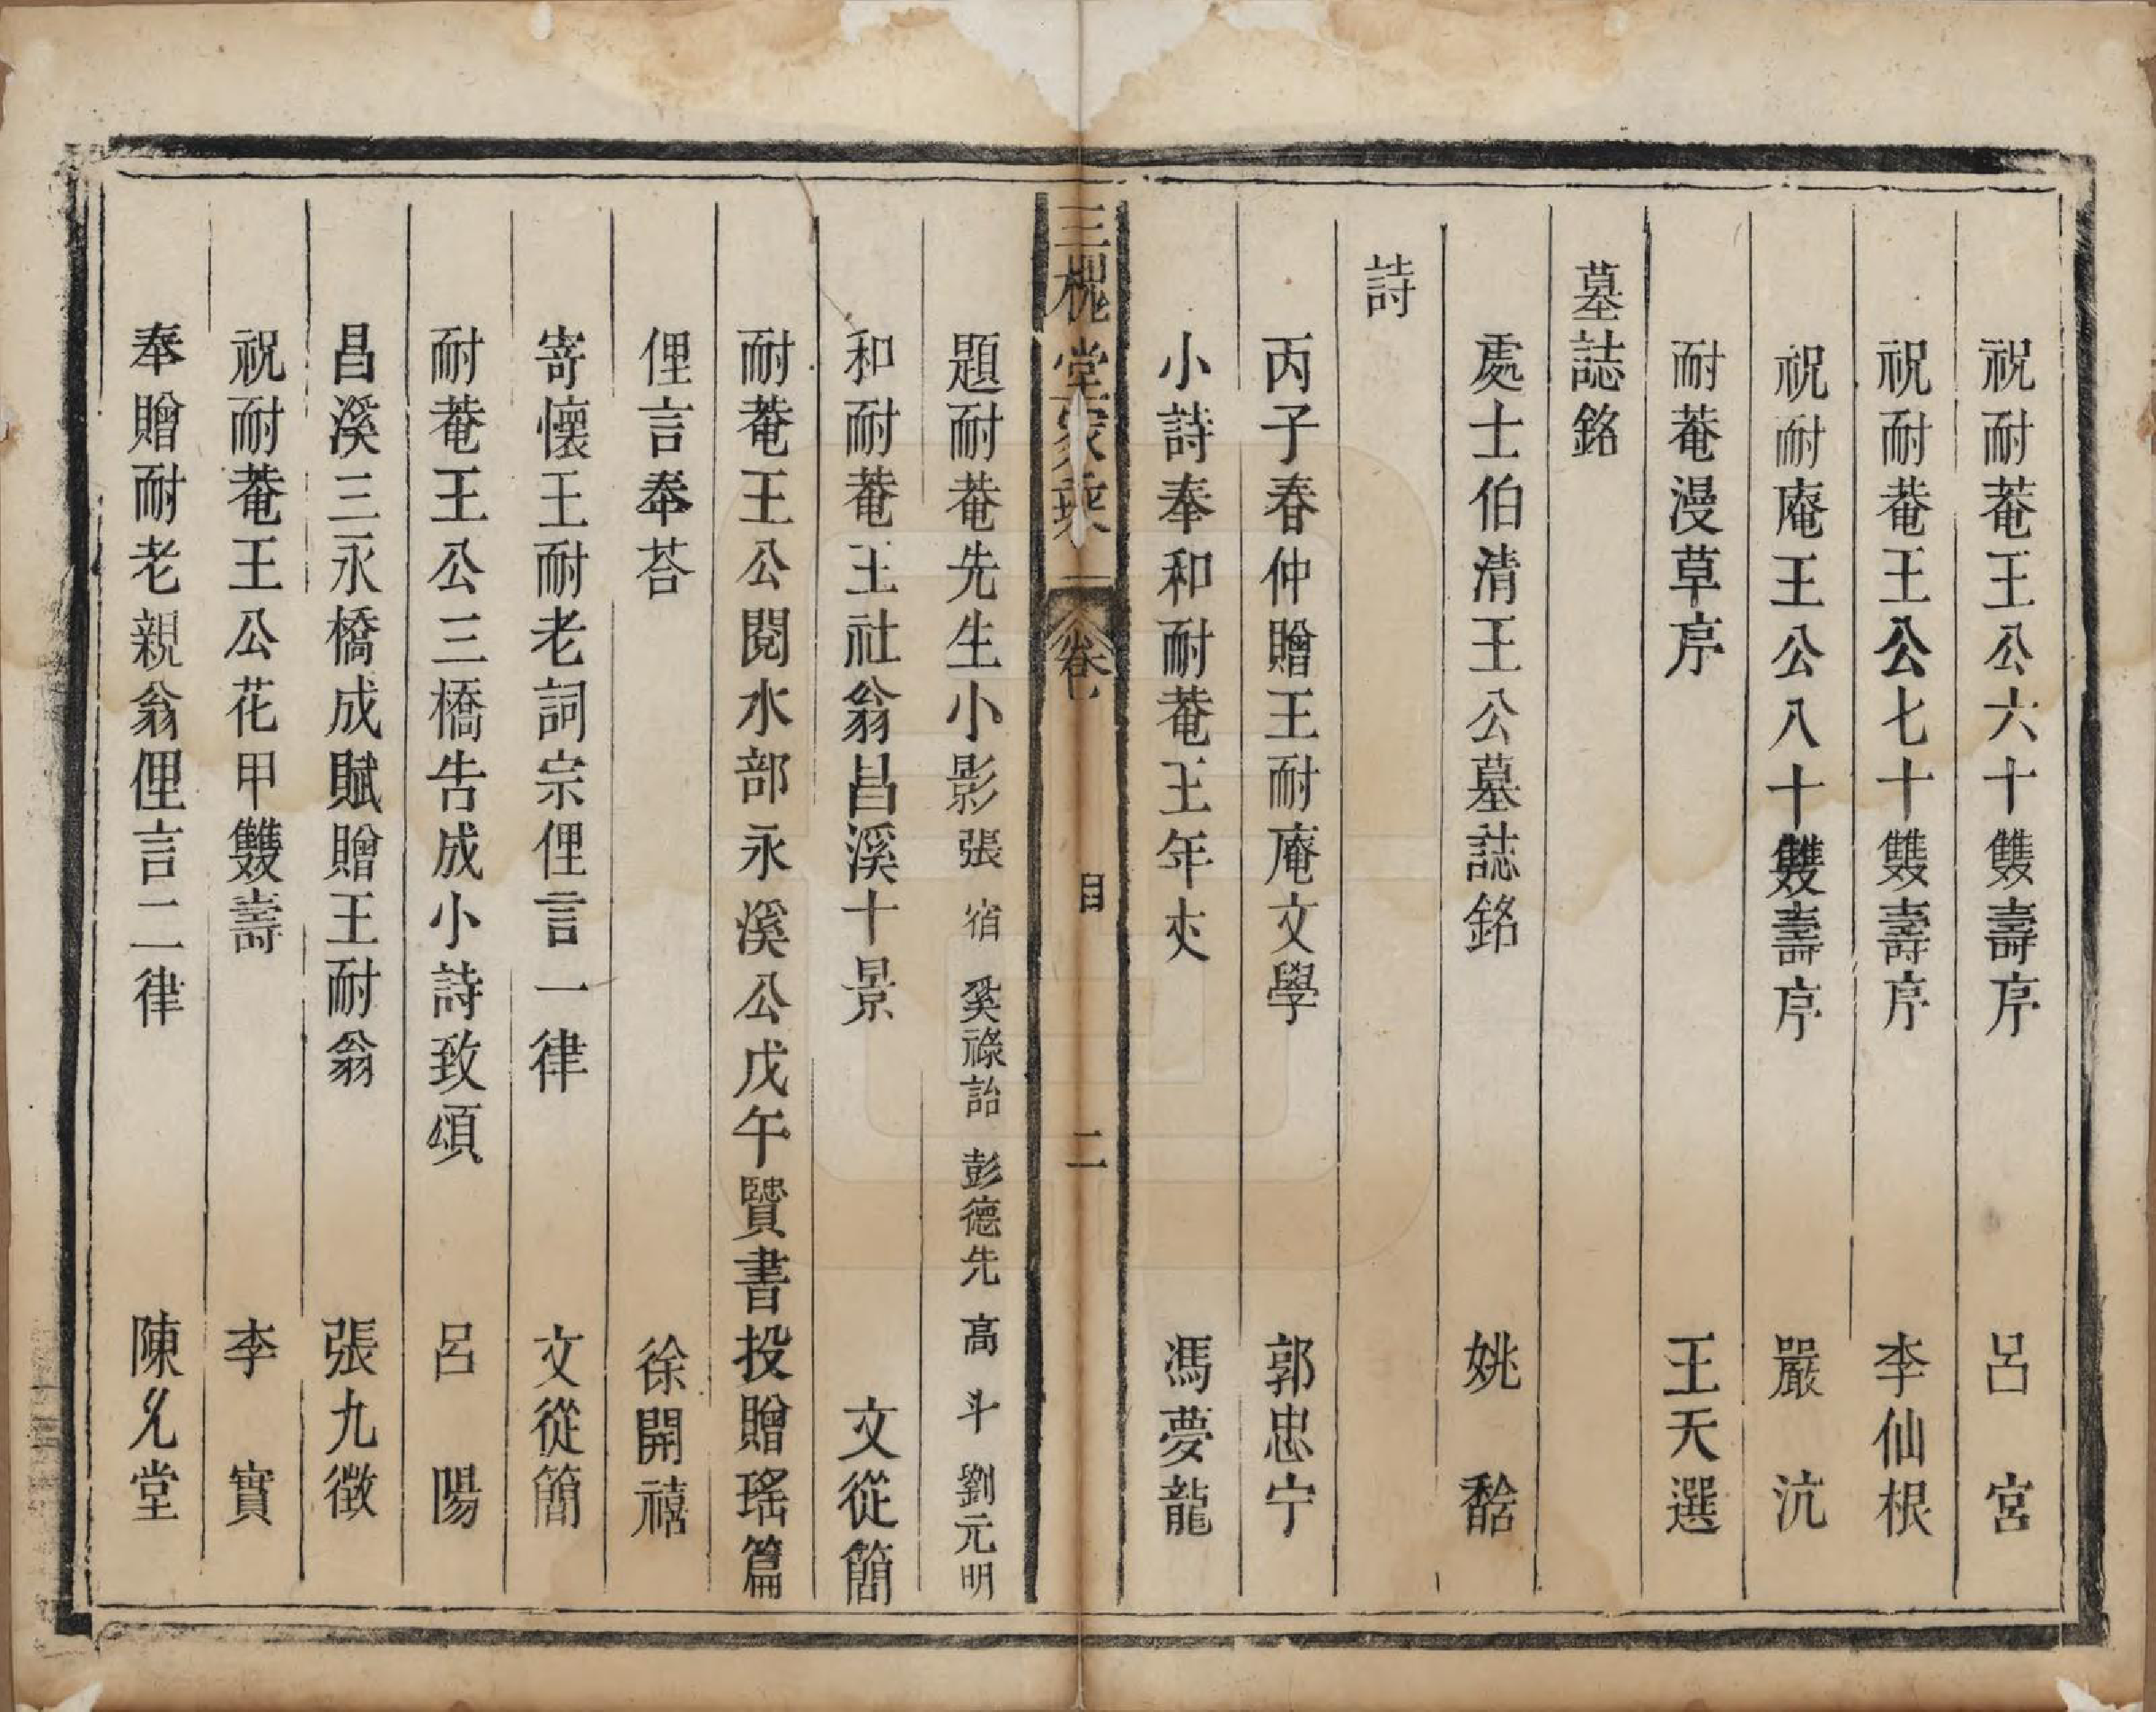 祝耐菴王公六十雙壽序 呂宮
祝耐菴王公七十雙壽序 李仙根
祝耐庵王公八十雙壽序 嚴沆
耐菴漫草序 王天選
墓誌銘
處士伯清王公墓誌銘 姚
詩
丙子春仲贈王耐庵文學 郭忠宁
小詩奉和耐菴王年丈 馮夢龍
三槐堂家乘 卷 目 二
題耐菴先生小影 張宿 奚祿詒 彭德先 高斗 劉元明
和耐菴王社翁昌溪十景 文從簡
耐菴王公閱水部永溪公戊午賢書投贈瑤篇
俚言奉荅 徐開禧
寄懷王耐老詞宗俚言一律 文從簡
耐菴王公三橋告成小詩致頌 呂陽
昌溪三永橋成賦贈王耐翁 張九徵
祝耐菴王公花甲雙壽 李實
奉贈耐老親翁俚言二律 陳堂